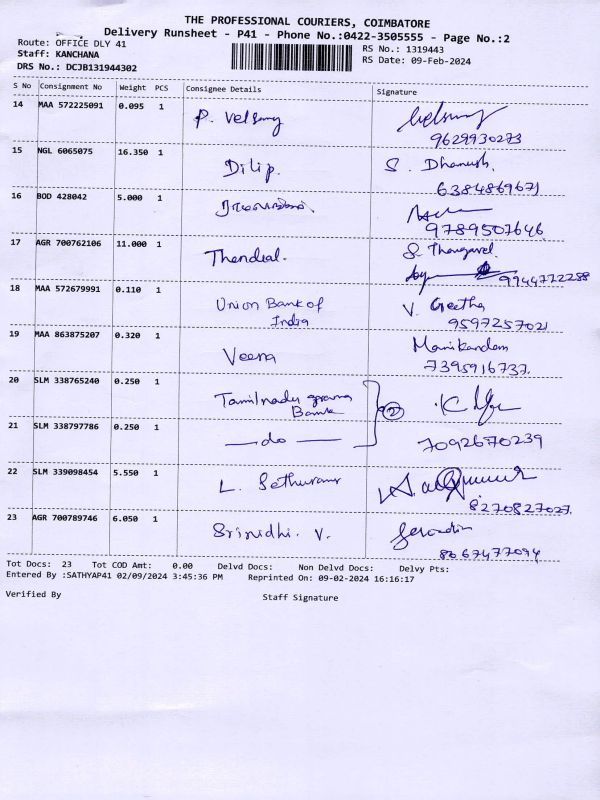 THE PROFESSIONAL COURIERS, COIMBATORE
Delivery Runsheet - P41 - Phone No.:0422-3505555 - Page No.:2
Route: OFFICE DLY 41
RS No.: 1319443
Staff: KANCHANA
RS Date: 09-Feb-2024
DRS No.: DCJB131944302
S No Consignment No Weight PCS Consignee Details Signature
14 MAA 572225091 0.095 1 P. Velsamy
9629930273
15 NGL 6065075 16.350 1 Dilip. S. Dhanush.
6384869671
16 BOD 428042 5.000 1
9789507646
17 AGR 700762106 11.000 1 Thendral. S. Thangavel
9944772288
18 MAA 572679991 0.110 1 Union Bank of V. Geetha
India 9597257021
19 MAA 863875207 0.320 1 Veena Manikandan
7395916737.
20 SLM 338765240 0.250 1 Tamilnadu grama
Bank
2
21 SLM 338797786 0.250 1 —do—
7092670239
22 SLM 339098454 5.550 1 L. Sethuram
8270827027.
23 AGR 700789746 6.050 1 Srinidhi. V.
8667477094
Tot Docs: 23 Tot COD Amt: 0.00 Delvd Docs: Non Delvd Docs: Delvy Pts:
Entered By :SATHYAP41 02/09/2024 3:45:36 PM Reprinted On: 09-02-2024 16:16:17
Verified By Staff Signature